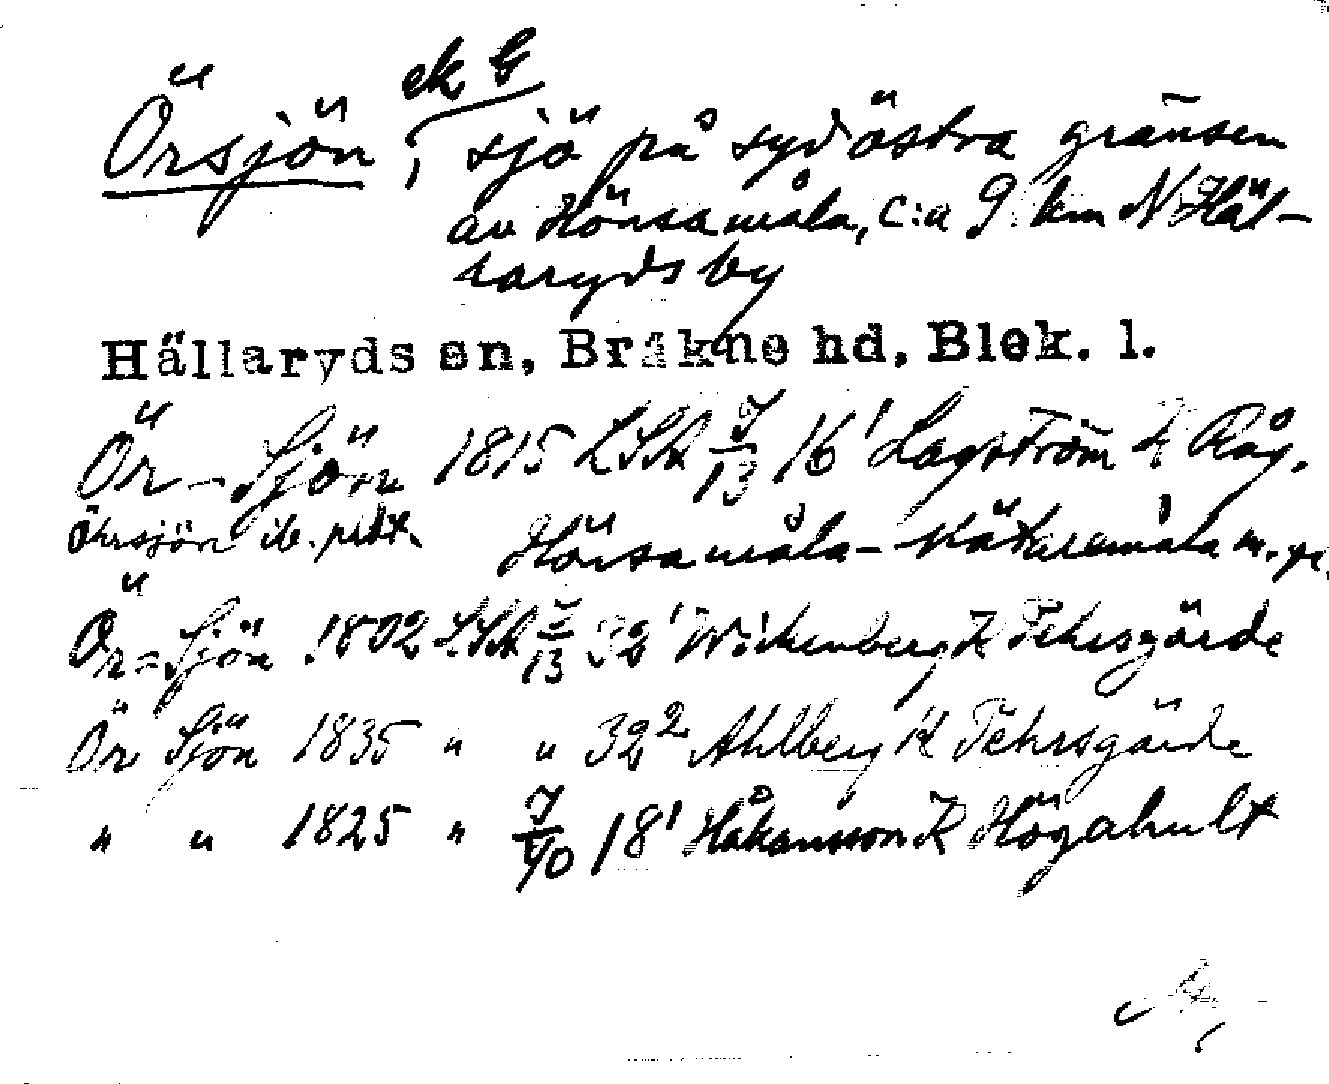 Örsjön, ek G sjö på sydöstra gränsen
av Hörsamåla, c:a 9 km N Häl-
laryds by
Hällaryds sn, Bräkne hd, Blek. l.
Ör-Sjön 1815 LSA J/13 16¹ Lagström K Råg.
Öhrsjön ib. prot. Hörsamåla- m.fl.
Ör=Sjön 1802 LSA J/13 32¹ Wickenberg K Tehrsgärde
Ör Sjön 1835 " " 32² Ahlberg K Tehrsgärde
" " 1825 " J/40 18¹ Håkansson K Högahult